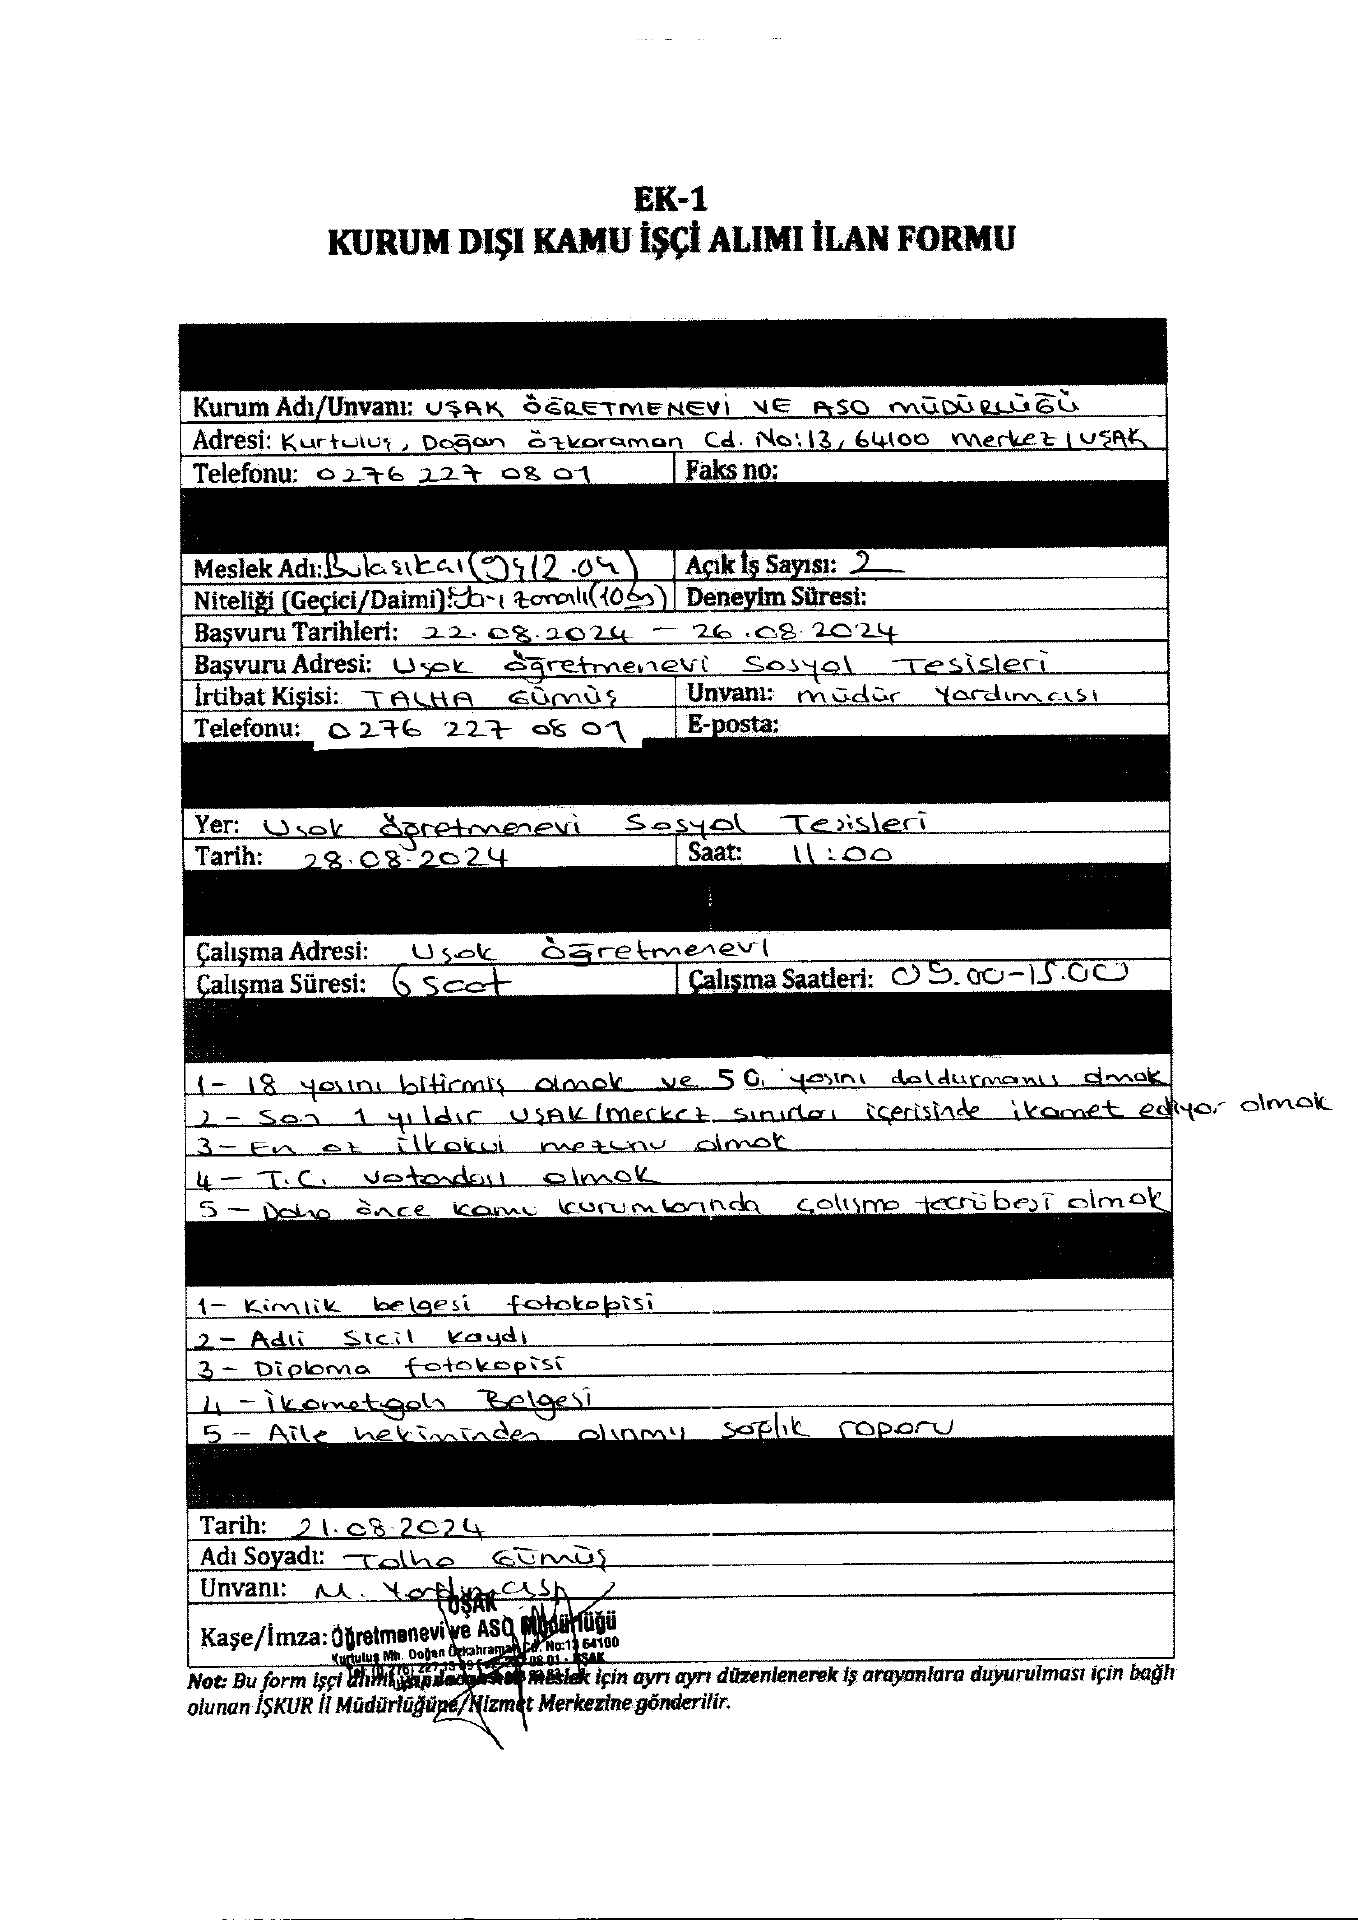 EK-1
KURUM DIŞI KAMU İŞÇİ ALIMI İLAN FORMU
Kurum Adı/Unvanı: UŞAK ÖĞRETMENEVİ VE ASO MÜDÜRLÜĞÜ
Adresi: Kurtuluş, Doğan Özkaraman Cd. No:13, 64100 Merkez/UŞAK
Telefonu: 0276 227 08 01 Faks no:
Meslek Adı: Bulaşıkçı (9412.04) Açık İş Sayısı: 2
Niteliği (Geçici/Daimi): Yarı zamanlı (10 ay) Deneyim Süresi:
Başvuru Tarihleri: 22.08.2024 - 26.08.2024
Başvuru Adresi: Uşak öğretmenevi Sosyal Tesisleri
İrtibat Kişisi: TALHA GÜMÜŞ Unvanı: müdür yardımcısı
Telefonu: 0276 227 08 01 E-posta:
Yer: Uşak öğretmenevi Sosyal Tesisleri
Tarih: 28.08.2024 Saat: 11:00
Çalışma Adresi: Uşak Öğretmenevi
Çalışma Süresi: 6 saat Çalışma Saatleri: 09.00-15.00
1- 18 yaşını bitirmiş olmak ve 50. yaşını doldurmamış olmak
2- Son 1 yıldır UŞAK/Merkez sınırları içerisinde ikamet ediyor olmak
3- En az ilkokul mezunu olmak
4- T.C. vatandaşı olmak
5- Daha önce kamu kurumlarında çalışma tecrübesi olmak
1- Kimlik belgesi fotokopisi
2- Adli Sicil Kaydı
3- Diploma fotokopisi
4- İkametgah Belgesi
5- Aile hekiminden alınmış sağlık raporu
Tarih: 21.08.2024
Adı Soyadı: Talha Gümüş
Unvanı: M. Yardımcısı
UŞAK
Kaşe/İmza: Öğretmenevi ve ASO Müdürlüğü
Kurtuluş Mh. Doğan Özkahraman Cd. No:13 64100
Not: Bu form işçi meslek için ayrı ayrı düzenlenerek iş arayanlara duyurulması için bağlı
olunan İŞKUR İl Müdürlüğüne/Hizmet Merkezine gönderilir.